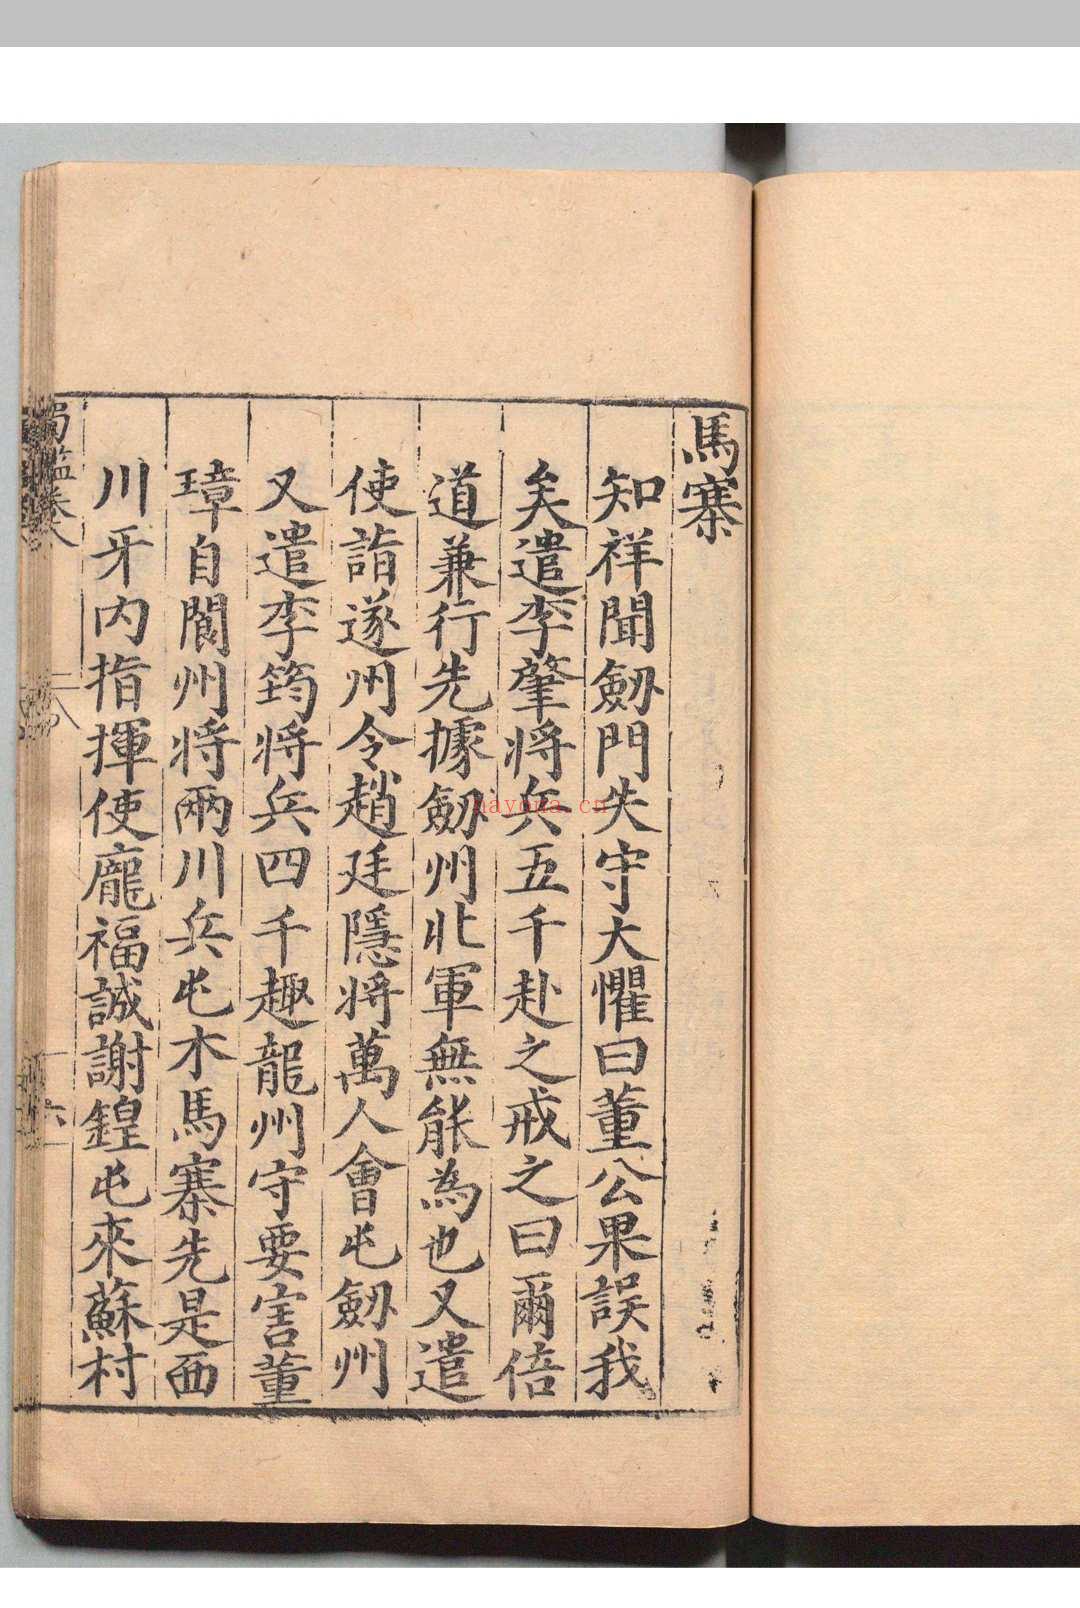 馬寨
知祥聞劒門失守大懼曰董公果誤我
矣遣李肇將兵五千赴之戒之曰爾倍
道兼行先據劒州北軍無能為也又遣
使詣遂州令趙廷隱將萬人會屯劒州
又遣李筠將兵四千趣龍州守要害董
璋自閬州將兩川兵屯木馬寨先是西
川牙内指揮使龐福誠謝鍠屯來蘇村
蜀鑑卷八
六
nayona.cn